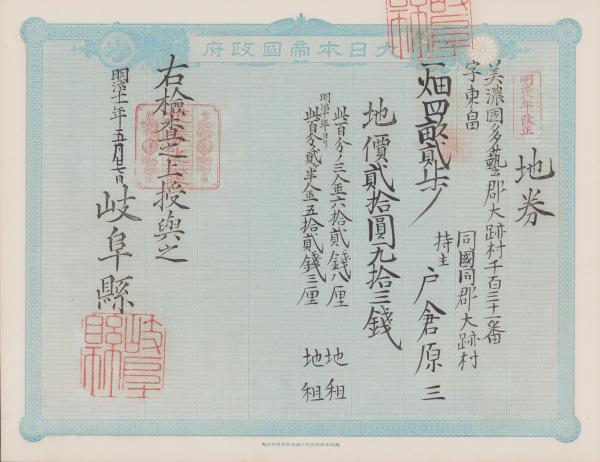 大日本帝國政府
明治八年改正
地券
美濃國多藝郡大跡村千百三十一番
字東畠
同國同郡大跡村
持主 戸倉原三
一畑四畝貳歩
地價貳拾圓九拾三錢
此百分ノ三金六拾貳錢八厘 地租
明治十年ヨリ
此百分ノ貳半金五拾貳錢三厘 地租
右檢査之上授與之
明治十一年五月廿七日
岐阜縣